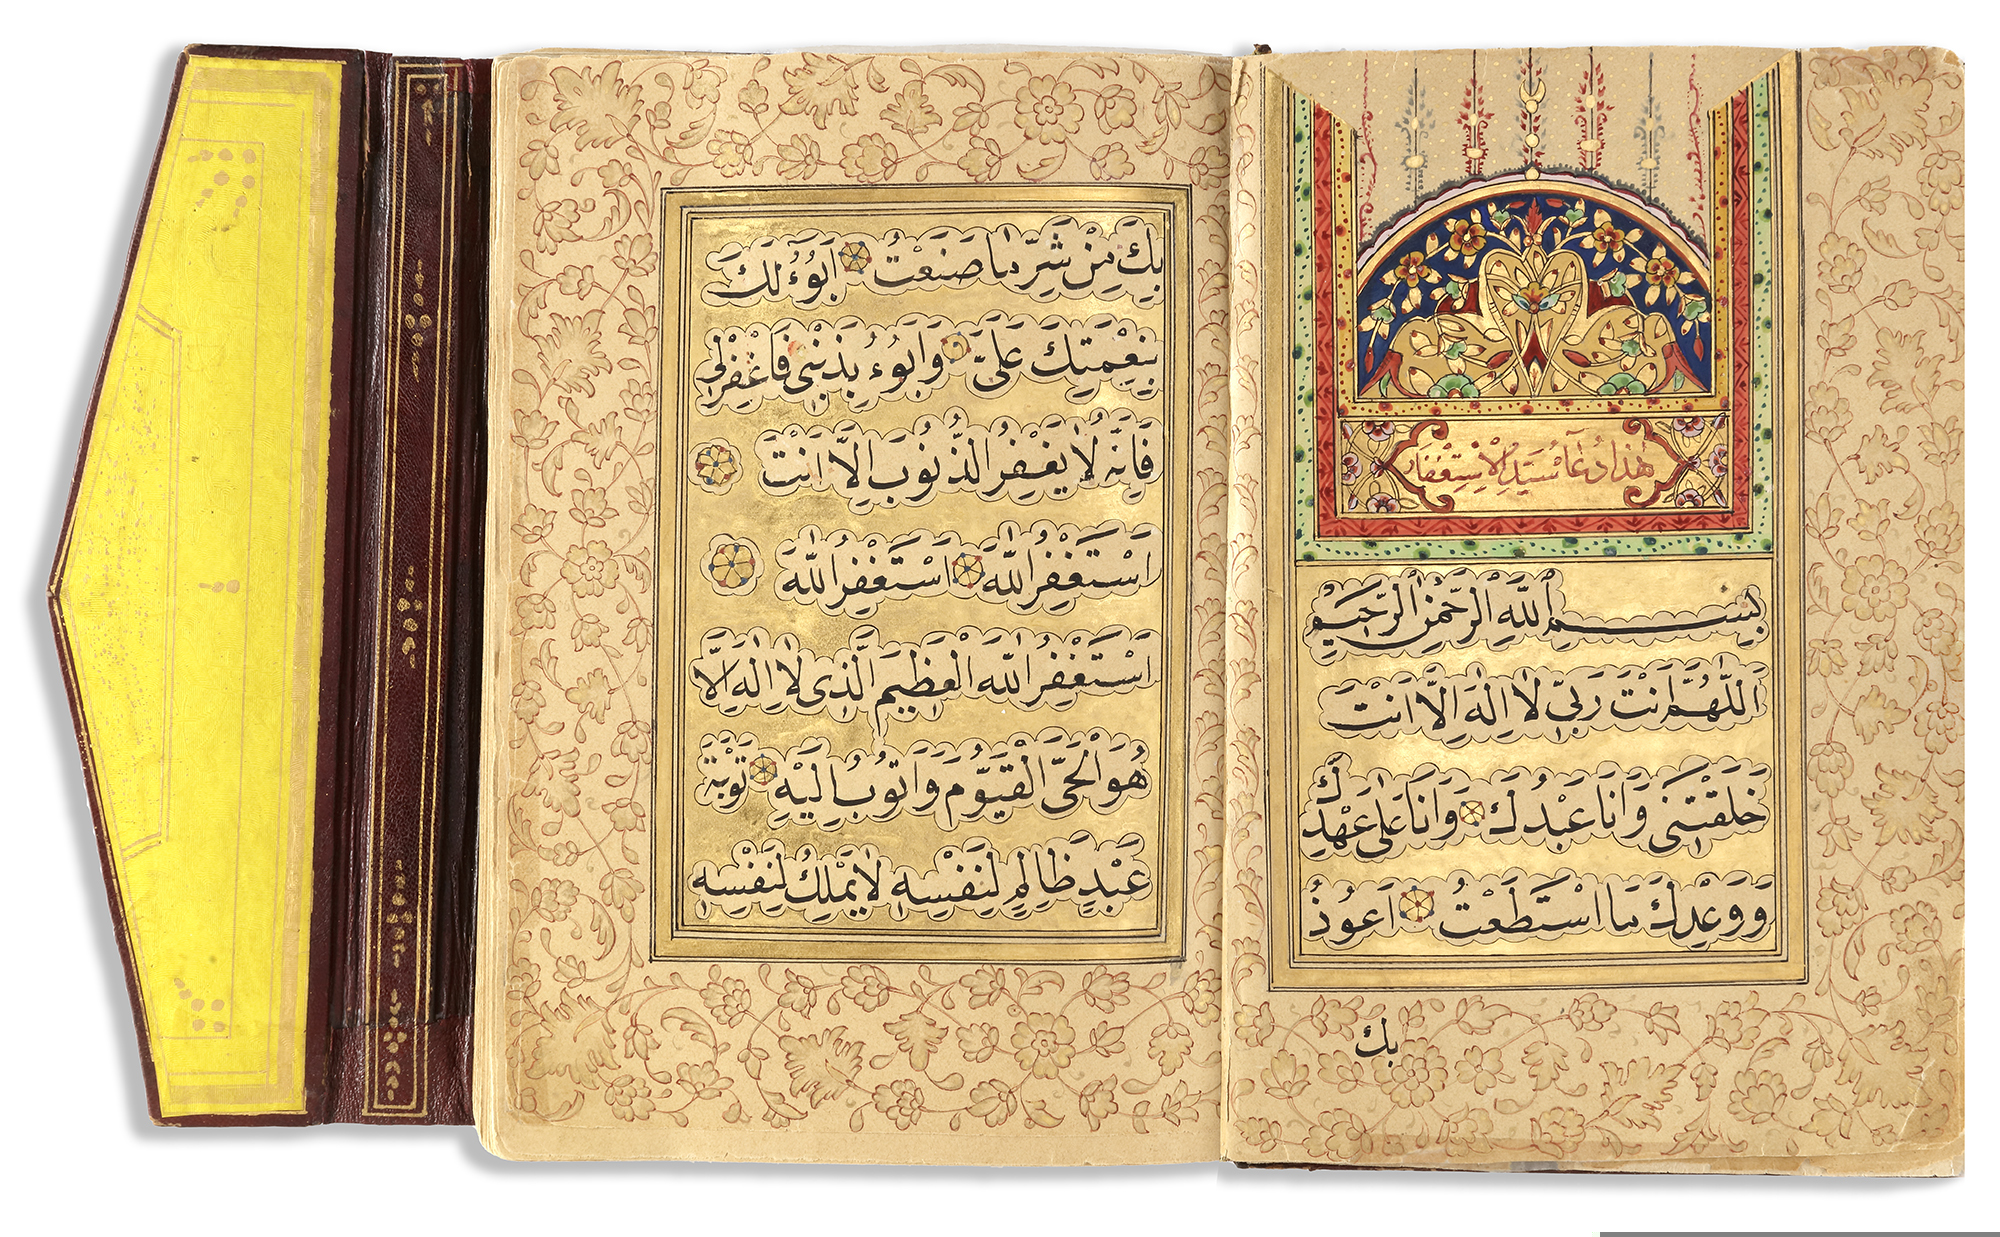 هذا دُعَآءُ سَيِّدِ الْاِسْتِغْفَارِ
بِسْمِ اللّٰهِ الرَّحْمٰنِ الرَّحِيمِ
اَللّٰهُمَّ اَنْتَ رَبِّى لَا اِلٰهَ اِلَّا اَنْتَ
خَلَقْتَنِى وَاَنَا عَبْدُكَ وَاَنَا عَلٰى عَهْدِكَ
وَوَعْدِكَ مَا اسْتَطَعْتُ اَعُوذُ
بك
بِكَ مِنْ شَرِّ مَا صَنَعْتُ اَبُوۤءُ لَكَ
بِنِعْمَتِكَ عَلَىَّ وَاَبُوءُ بِذَنْبِى فَاغْفِرْلِى
فَاِنَّهُ لَا يَغْفِرُ الذُّنُوبَ اِلَّا اَنْتَ
اَسْتَغْفِرُ اللّٰهَ اَسْتَغْفِرُ اللّٰهَ
اَسْتَغْفِرُ اللّٰهَ الْعَظِيمَ الَّذِى لَا اِلٰهَ اِلَّا
هُوَ الْحَىَّ الْقَيُّومَ وَاَتُوبُ اِلَيْهِ تَوْبَةَ
عَبْدٍ ظَالِمٍ لِنَفْسِهِ لَا يَمْلِكُ لِنَفْسِهِ